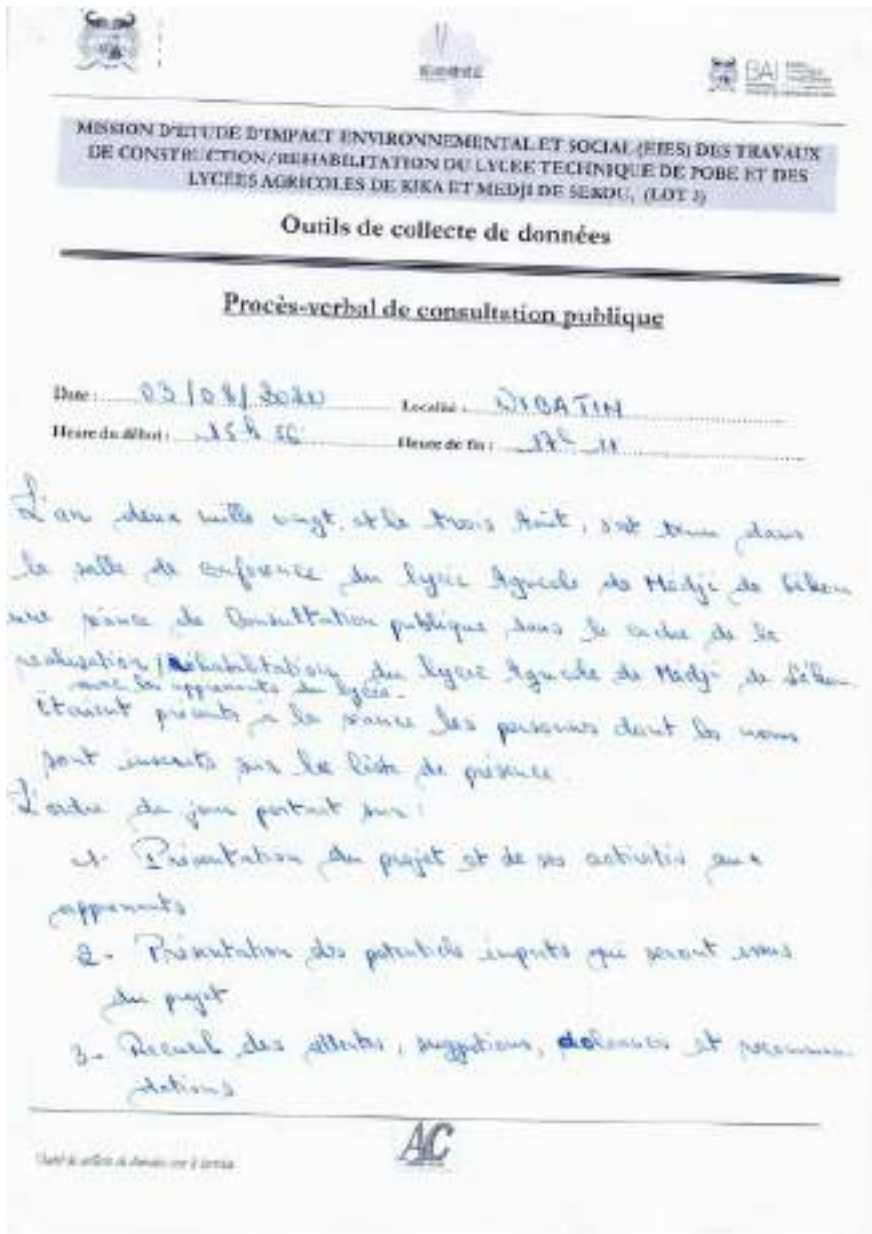 BAI
MISSION D'ETUDE D'IMPACT ENVIRONNEMENTAL ET SOCIAL (EIES) DES TRAVAUX
DE CONSTRUCTION/REHABILITATION DU LYCEE TECHNIQUE DE POBE ET DES
LYCEES AGRICOLES DE KIKA ET MEDJI DE SEKOU, (LOT 3)
Outils de collecte de données
Procès-verbal de consultation publique
Date : 03/08/2020 Localité :
Heure du début : 15h 56 Heure de fin : 17h 11
L'an deux mille vingt, et le trois Août, s'est tenu dans
la salle de conférence du lycée Agricole de Médji de Sékou
une séance de Consultation publique dans le cadre de la
réalisation/Réhabilitation du lycée Agricole de Medji de Sékou
avec les apprenants du lycée.
Etaient présents à la séance les personnes dont les noms
sont inscrits sur la liste de présence.
L'ordre du jour portait sur :
1- Présentation du projet et de ses activités aux
apprenants
2- Présentation des potentiels impacts qui seront issus
du projet
3- Recueil des attentes, suggestions, doléances et recomman
dations
AC